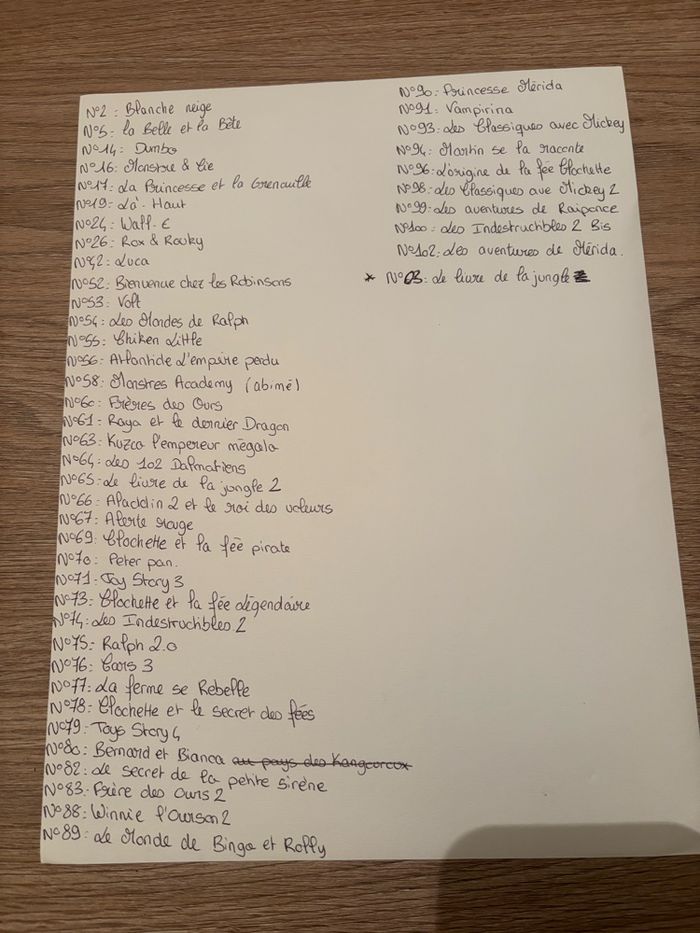 N°2 : Blanche neige
N°5 : la Belle et la Bête
N°14 : Dumbo
N°16 : Monstre & Cie
N°17 : La Princesse et la Grenouille
N°19 : Là-Haut
N°24 : Wall-E
N°26 : Rox & Rouky
N°42 : Luca
N°52 : Bienvenue chez les Robinsons
N°53 : Volt
N°54 : Les Mondes de Ralph
N°55 : Chiken Little
N°56 : Atlantide L'empire perdu
N°58 : Monstres Academy (abîmé)
N°60 : Frères des Ours
N°61 : Raya et le dernier Dragon
N°63 : Kuzco l'empereur mégalo
N°64 : Les 102 Dalmatiens
N°65 : Le livre de la jungle 2
N°66 : Aladdin 2 et le roi des voleurs
N°67 : Alerte rouge
N°69 : Clochette et la fée pirate
N°70 : Peter pan.
N°71 : Toy Story 3
N°73 : Clochette et la fée légendaire
N°74 : Les Indestructibles 2
N°75 : Ralph 2.0
N°76 : Cars 3
N°77 : La ferme se Rebelle
N°78 : Clochette et le secret des fées
N°79 : Toys Story 4
N°80 : Bernard et Bianca au pays des Kangouroux
N°82 : Le secret de la petite sirène
N°83 : Frère des Ours 2
N°88 : Winnie l'Ourson 2
N°89 : Le Monde de Bingo et Rolly
N°90 : Princesse Mérida
N°91 : Vampirina
N°93 : Les Classiques avec Mickey
N°94 : Martin se la raconte
N°96 : L'origine de la fée Clochette
N°98 : Les Classiques ave Mickey 2
N°99 : Les aventures de Raiponce
N°100 : Les Indestructibles 2 Bis
N°102 : Les aventures de Mérida.
* N°03 : Le livre de la jungle